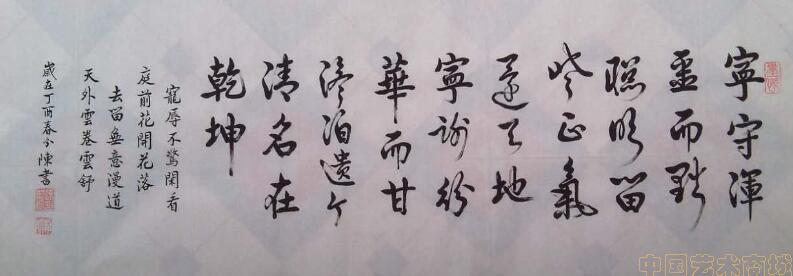 寧守渾
噩而黜
聰明留
些正氣
還天地
寧謝紛
華而甘
澹泊遺个
清名在
乾坤
寵辱不驚閑看
庭前花開花落
去留無意漫道
天外雲卷雲舒
歲在丁酉春分陳書
中国艺术商城